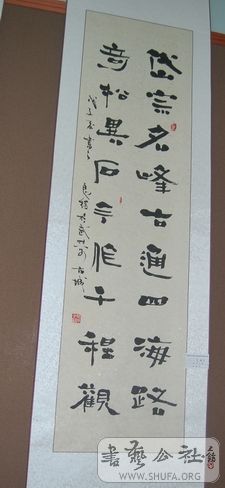 岱宗名峰古通四海路
奇松異石今作千程觀
書藝公社
WWW.SHUFA.ORG